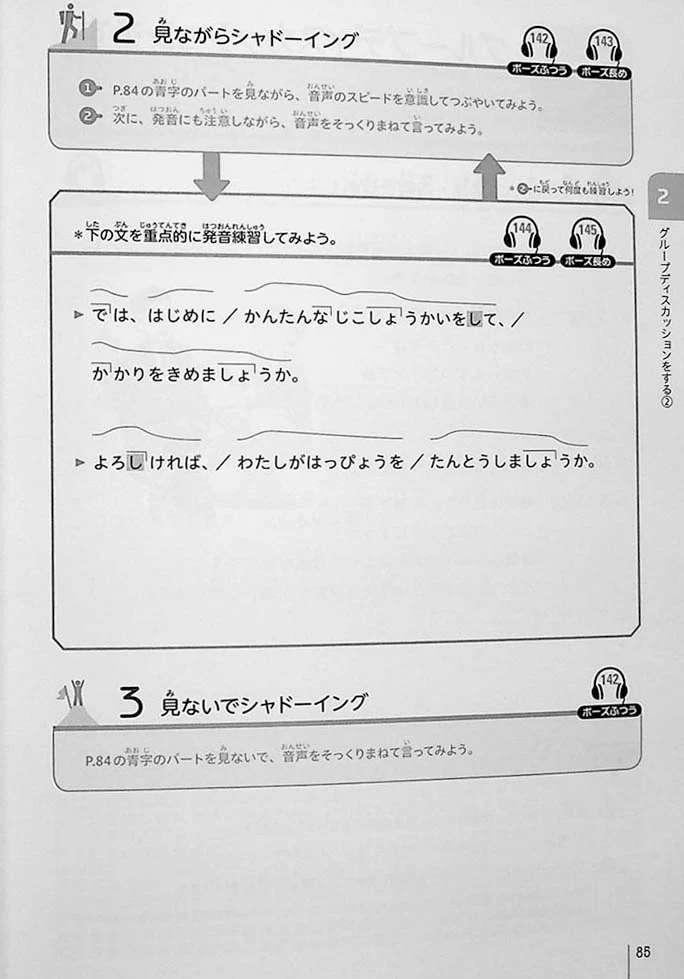 2 見ながらシャドーイング
142 143
ポーズふつう ポーズ長め
1 P.84の青字のパートを見ながら、音声のスピードを意識してつぶやいてみよう。
2 次に、発音にも注意しながら、音声をそっくりまねて言ってみよう。
*2に戻って何度も練習しよう!
*下の文を重点的に発音練習してみよう。
144 145
ポーズふつう ポーズ長め
▶では、はじめに／かんたんなじこしょうかいをして、／
かかりをきめましょうか。
▶よろしければ、／わたしがはっぴょうを／たんとうしましょうか。
3 見ないでシャドーイング
142
ポーズふつう
P.84の青字のパートを見ないで、音声をそっくりまねて言ってみよう。
2
グループディスカッションをする②
85